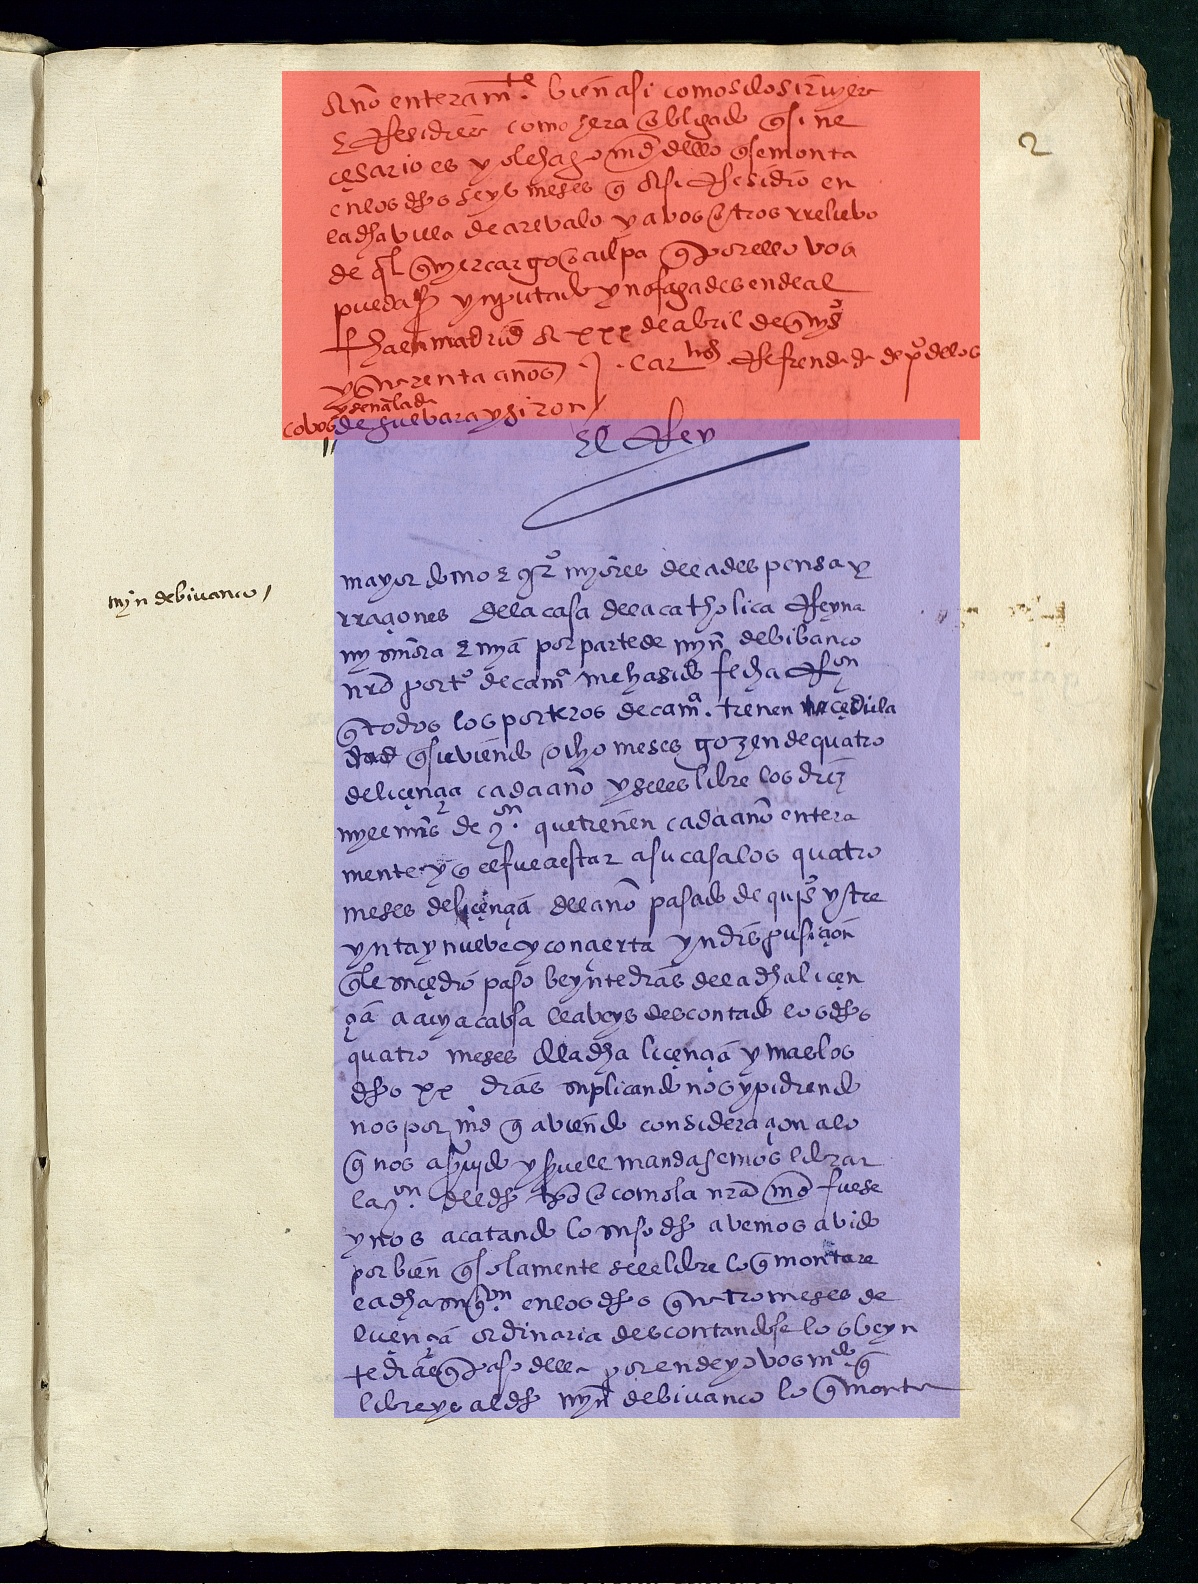 2
año enteramte. bien asi como si lo sirvyera
e Residiera como hera obligado q si ne
cesario es yo le hago md dello q se monta
en los dhos seys meses q asi Residio en
la dha villa de arevalo y a vos otros rrelievo
de ql qyer cargo o culpa q por ello vos
pueda ser ynputado y no fagades ende al
fha en madrid a xxx de abril de qyos
y quarenta anos. Carlis. Refrendada de po de los
y señalada
cobos de guevara y giron
El Rey
myn de bivanco
mayordomo e qor myores de la despensa y
rraçiones de la casa de la catholica Reyna
my señora e mya por parte de myn de bibanco
nro porto de cama me ha sido fecha Ron
q todos los porteros de cama. tienen cedula
q sirviendo ocho meses gozen de quatro
de liçençia cada año y se les libre los diez
myll mrs de qon. que tienen cada año entera
mente y q el fue a estar a su casa los quatro
meses de liçençia del año pasado de quios y tre
ynta y nueve y con çierta yndispusiçion
q le suçedio paso beynte dias de la dha liçen
çia a cuya cabsa le aveys descontado los dhos
quatro meses de la dha liçençia y mas los
dhos xx dias suplicandonos y pidiendo
nos por md q aviendo consideraçion a lo
q nos a servido y sirve le mandasemos librar
la qon. del dho tpo o como la nra md fuese
y nos acatando lo suso dho avemos avido
por bien q solamente se le libre lo q montare
la dha su qon en los dhos quatro meses de
liçençia ordinaria descontandose los beyn
te dias q paso della por ende yo vos mdo q
libreys al dho myn de bivanco lo q monta